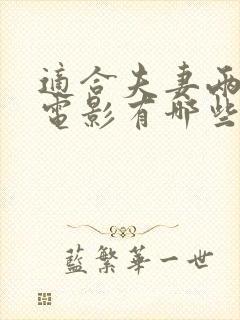 適合夫妻兩
電影有哪些
藍繁華一世